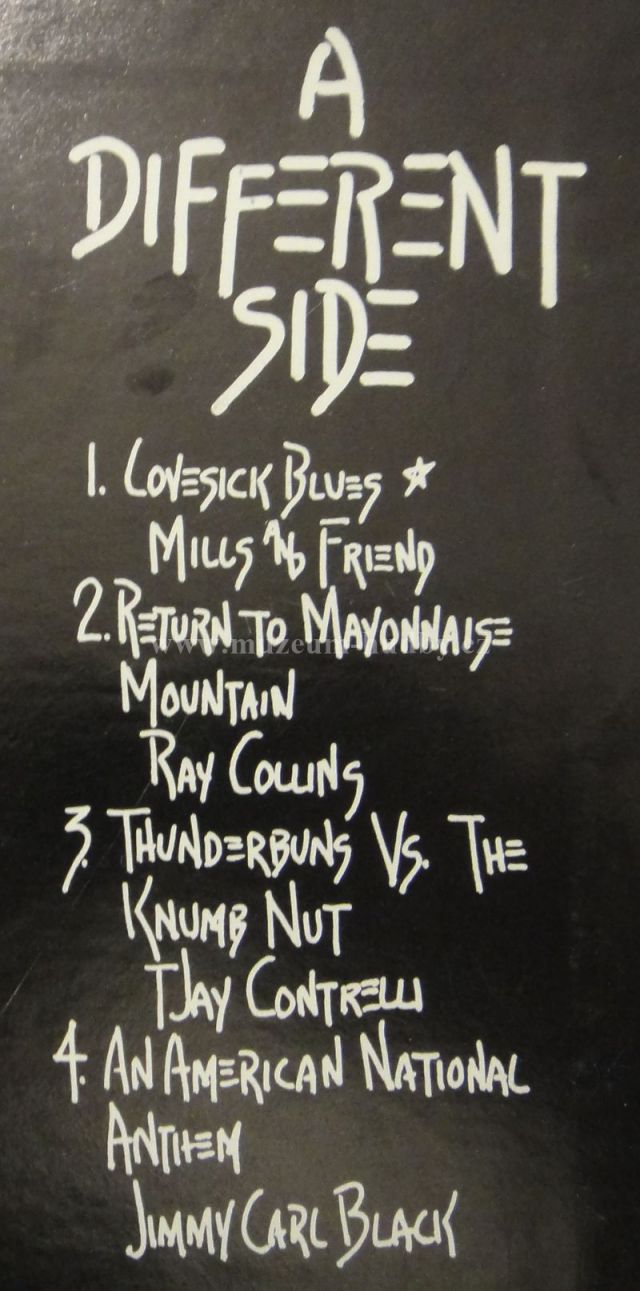 A
DIFFERENT
SIDE
1. LOVESICK BLUES ★
MILLS AND FRIEND
2. RETURN TO MAYONNAISE
MOUNTAIN
RAY COLLINS
3. THUNDERBUNS VS. THE
KNUMB NUT
TJAY CONTRELLI
4. AN AMERICAN NATIONAL
ANTHEM
JIMMY CARL BLACK
www.muzeum-hudby.cz